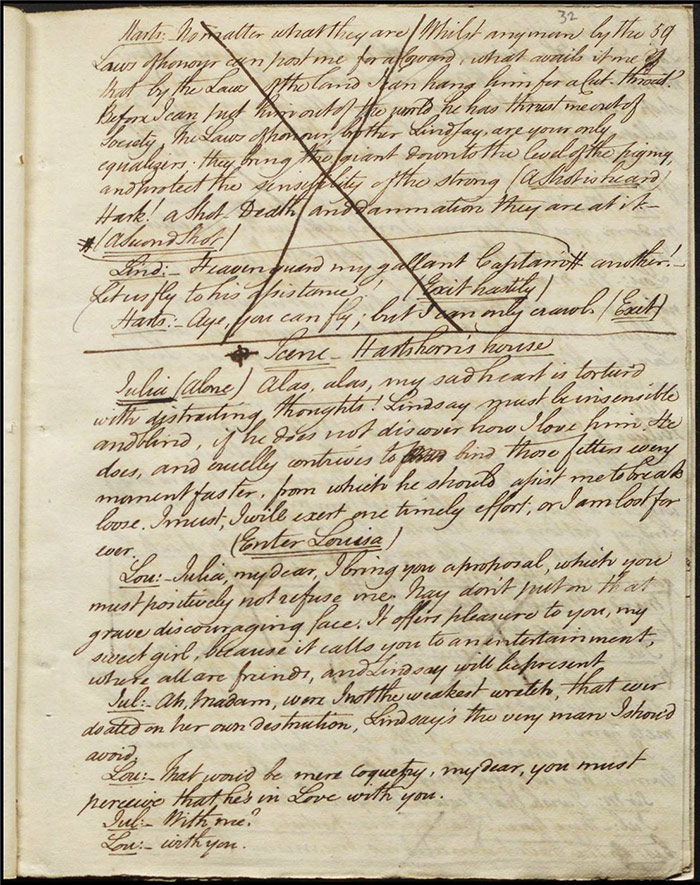 32
Harts:- No matter what they are / Whilst any man by the 59
Laws of honour can post me for a Coward, what avails it me if
that by the Laws of the land I can hang him for a Cut-throat?
Before I can put him out of the world he has thrust me out of
Society. The Laws of honour, brother Lindsay, are your only
equalizers: they bring the giant down to the level of the pigmy,
and protect the sensibility of the strong (A Shot is heard)
Hark! a Shot - Death and damnation they are at it -
# (A second Shot)
Lind:- Heaven guard my gallant Captain # another!-
(Let us fly to his assistance! (Exit hastily)
Harts:- Aye, you can fly; but I can only crawl. (Exit)
Scene - Hartshorn's house
Julia (Alone) Alas, alas, my sad heart is tortur'd
with distracting thoughts! Lindsay must be insensible
and blind, if he does not discover how I love him. He
does, and cruelly contrives to bind those fetters every
moment faster, from which he should assist me to break
loose. I must, I will exert one timely effort, or I am lost for
ever. (Enter Louisa)
Lou:- Julia, my dear, I bring you a proposal, which you
must positively not refuse me. Nay don't put on that
grave discouraging face. It offers pleasure to you, my
sweet girl, because it calls you to an entertainment,
where all are friends, and Lindsay will be present
Jul:- Ah, madam, were I not the weakest wretch, that ever
doated on her own destruction, Lindsay's the very man I shou'd
avoid.
Lou:- That would be mere coquetry, my dear, you must
perceive that he's in Love with you.
Jul:- With me?
Lou:- with you.